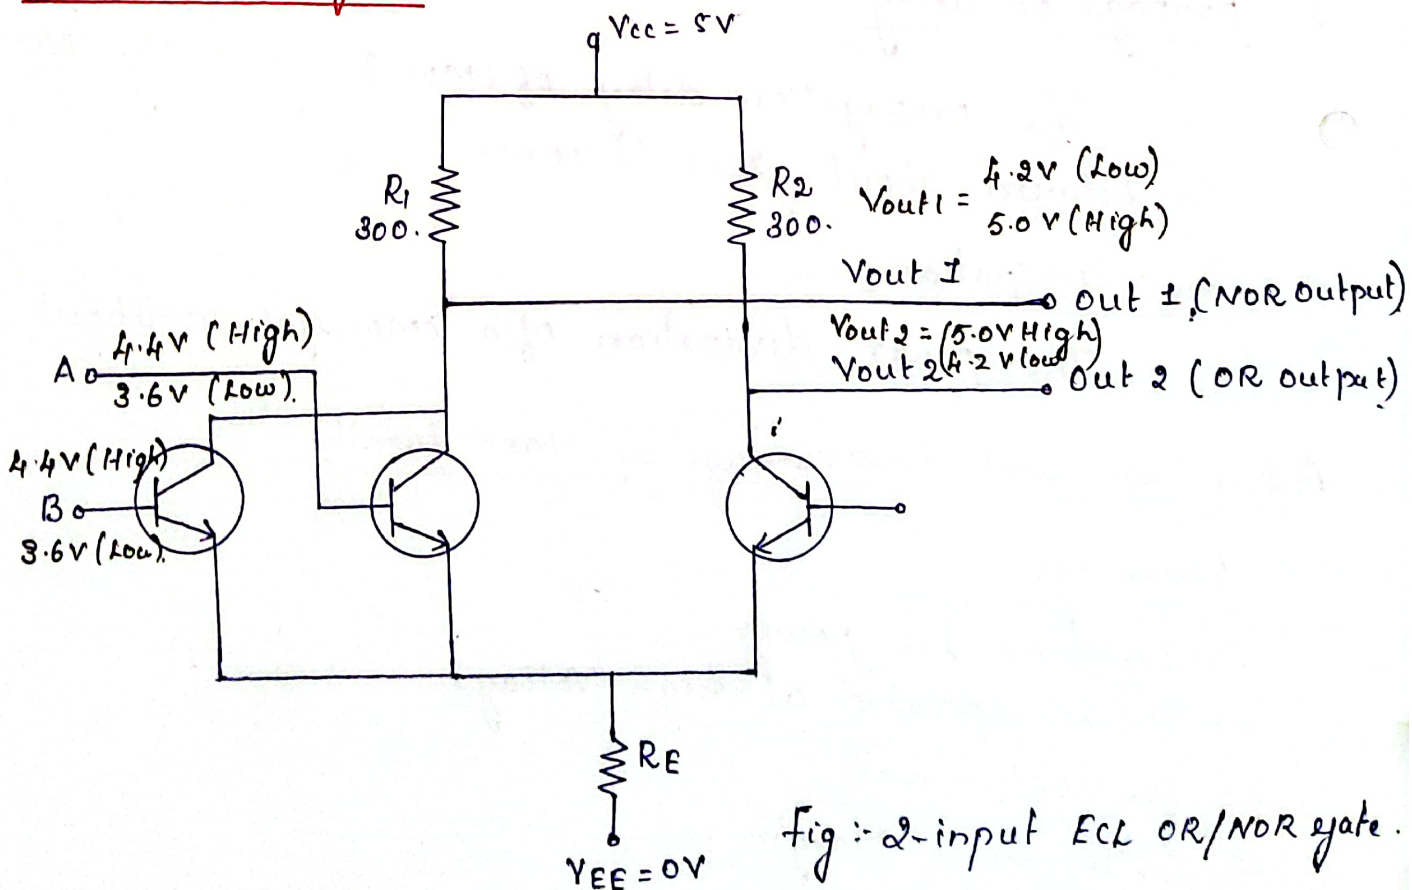 Vcc = 5V
R1
300.
R2
300.
Vout1 =
4.2V (Low)
5.0V (High)
Vout 1
Out 1 (NOR Output)
Vout 2 = (5.0V High)
Vout 2 (4.2V low
Out 2 (OR output)
4.4V (High)
A
3.6V (Low).
4.4V (High)
B
3.6V (Low).
RE
VEE = 0V
Fig :- 2-input ECL OR/NOR gate.